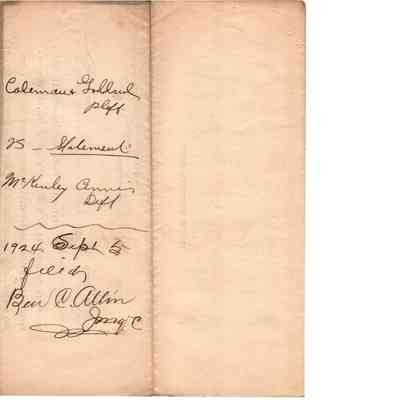 Coleman & Gollard
plff
vs - Statement
McKinley Annis
Deft
1924 Sept 5
filed
Ben C. Allin